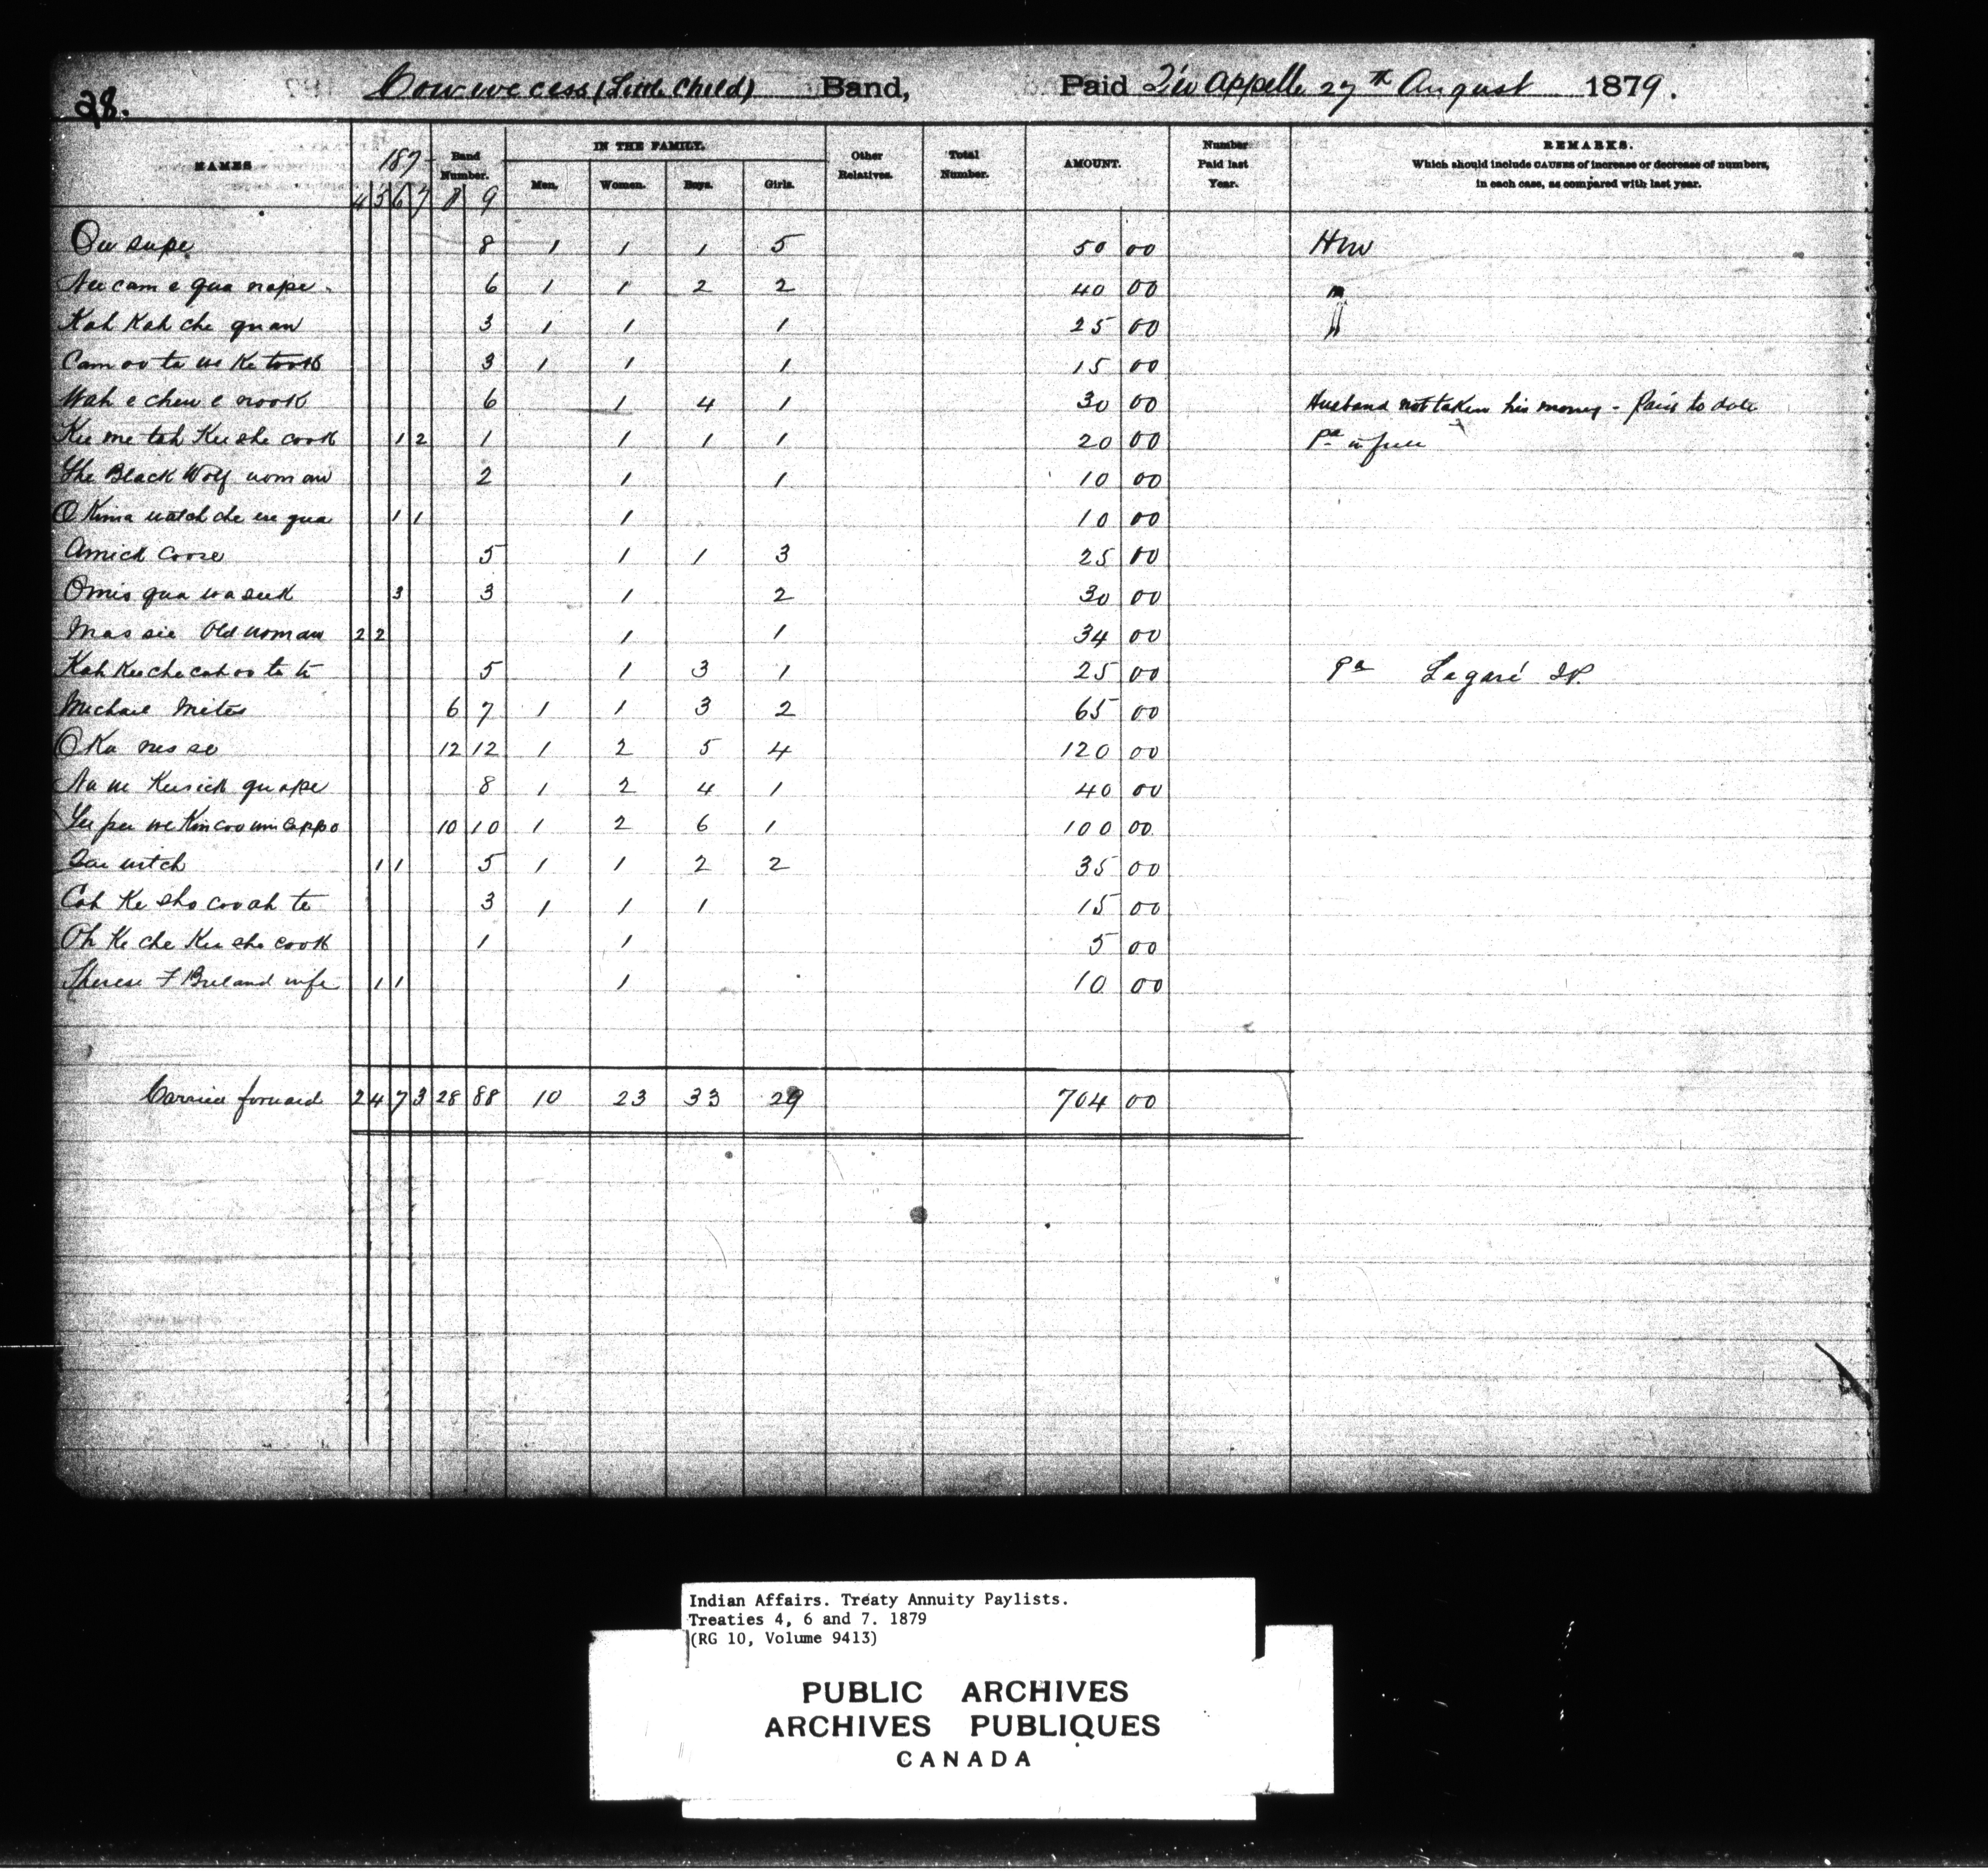 28.
Cowewecess (Little Child) Band, Paid Qu'Appelle 27th August 1879.
NAMES 187 Band Number. IN THE FAMILY. Other Relatives. Total Number. AMOUNT. Number Paid last Year. REMARKS.
Which should include CAUSES of increase or decrease of numbers, in each case, as compared with last year.
4 5 6 7 8 9 Men. Women. Boys. Girls.
8 1 1 1 5 50 00
Nee cam e qua nape 6 1 1 2 2 40 00 "
Kah Kah che quan 3 1 1 1 25 00 "
Cam oo ta we Ke took 3 1 1 1 15 00
Wah e chew e nook 6 1 4 1 30 00 Husband not taken his money - Paid to date
Kee me tah Kee she cook 1 2 1 1 1 1 20 00 Pd in full
The Black Wolf woman 2 1 1 10 00
O Kima watch che we qua 1 1 1 10 00
Amick coose 5 1 1 3 25 00
Omis qua wa seek 3 3 1 2 30 00
Mas sie Old woman 2 2 1 1 34 00
Kah Kee che cah oo ta te 5 1 3 1 25 00 Pd Legaré
Michael 6 7 1 1 3 2 65 00
O Ka nes se 12 12 1 2 5 4 120 00
Na we Keesick quape 8 1 2 4 1 40 00
10 10 1 2 6 1 100 00
1 1 5 1 1 2 2 35 00
Cah Ke sho coo ah te 3 1 1 1 15 00
Oh Ke che Kee sho cook 1 1 5 00
Therese F Breland wife 1 1 1 10 00
Carried forward 2 4 7 3 28 88 10 23 33 29 704 00
Indian Affairs. Treaty Annuity Paylists.
Treaties 4, 6 and 7. 1879
(RG 10, Volume 9413)
PUBLIC ARCHIVES
ARCHIVES PUBLIQUES
CANADA